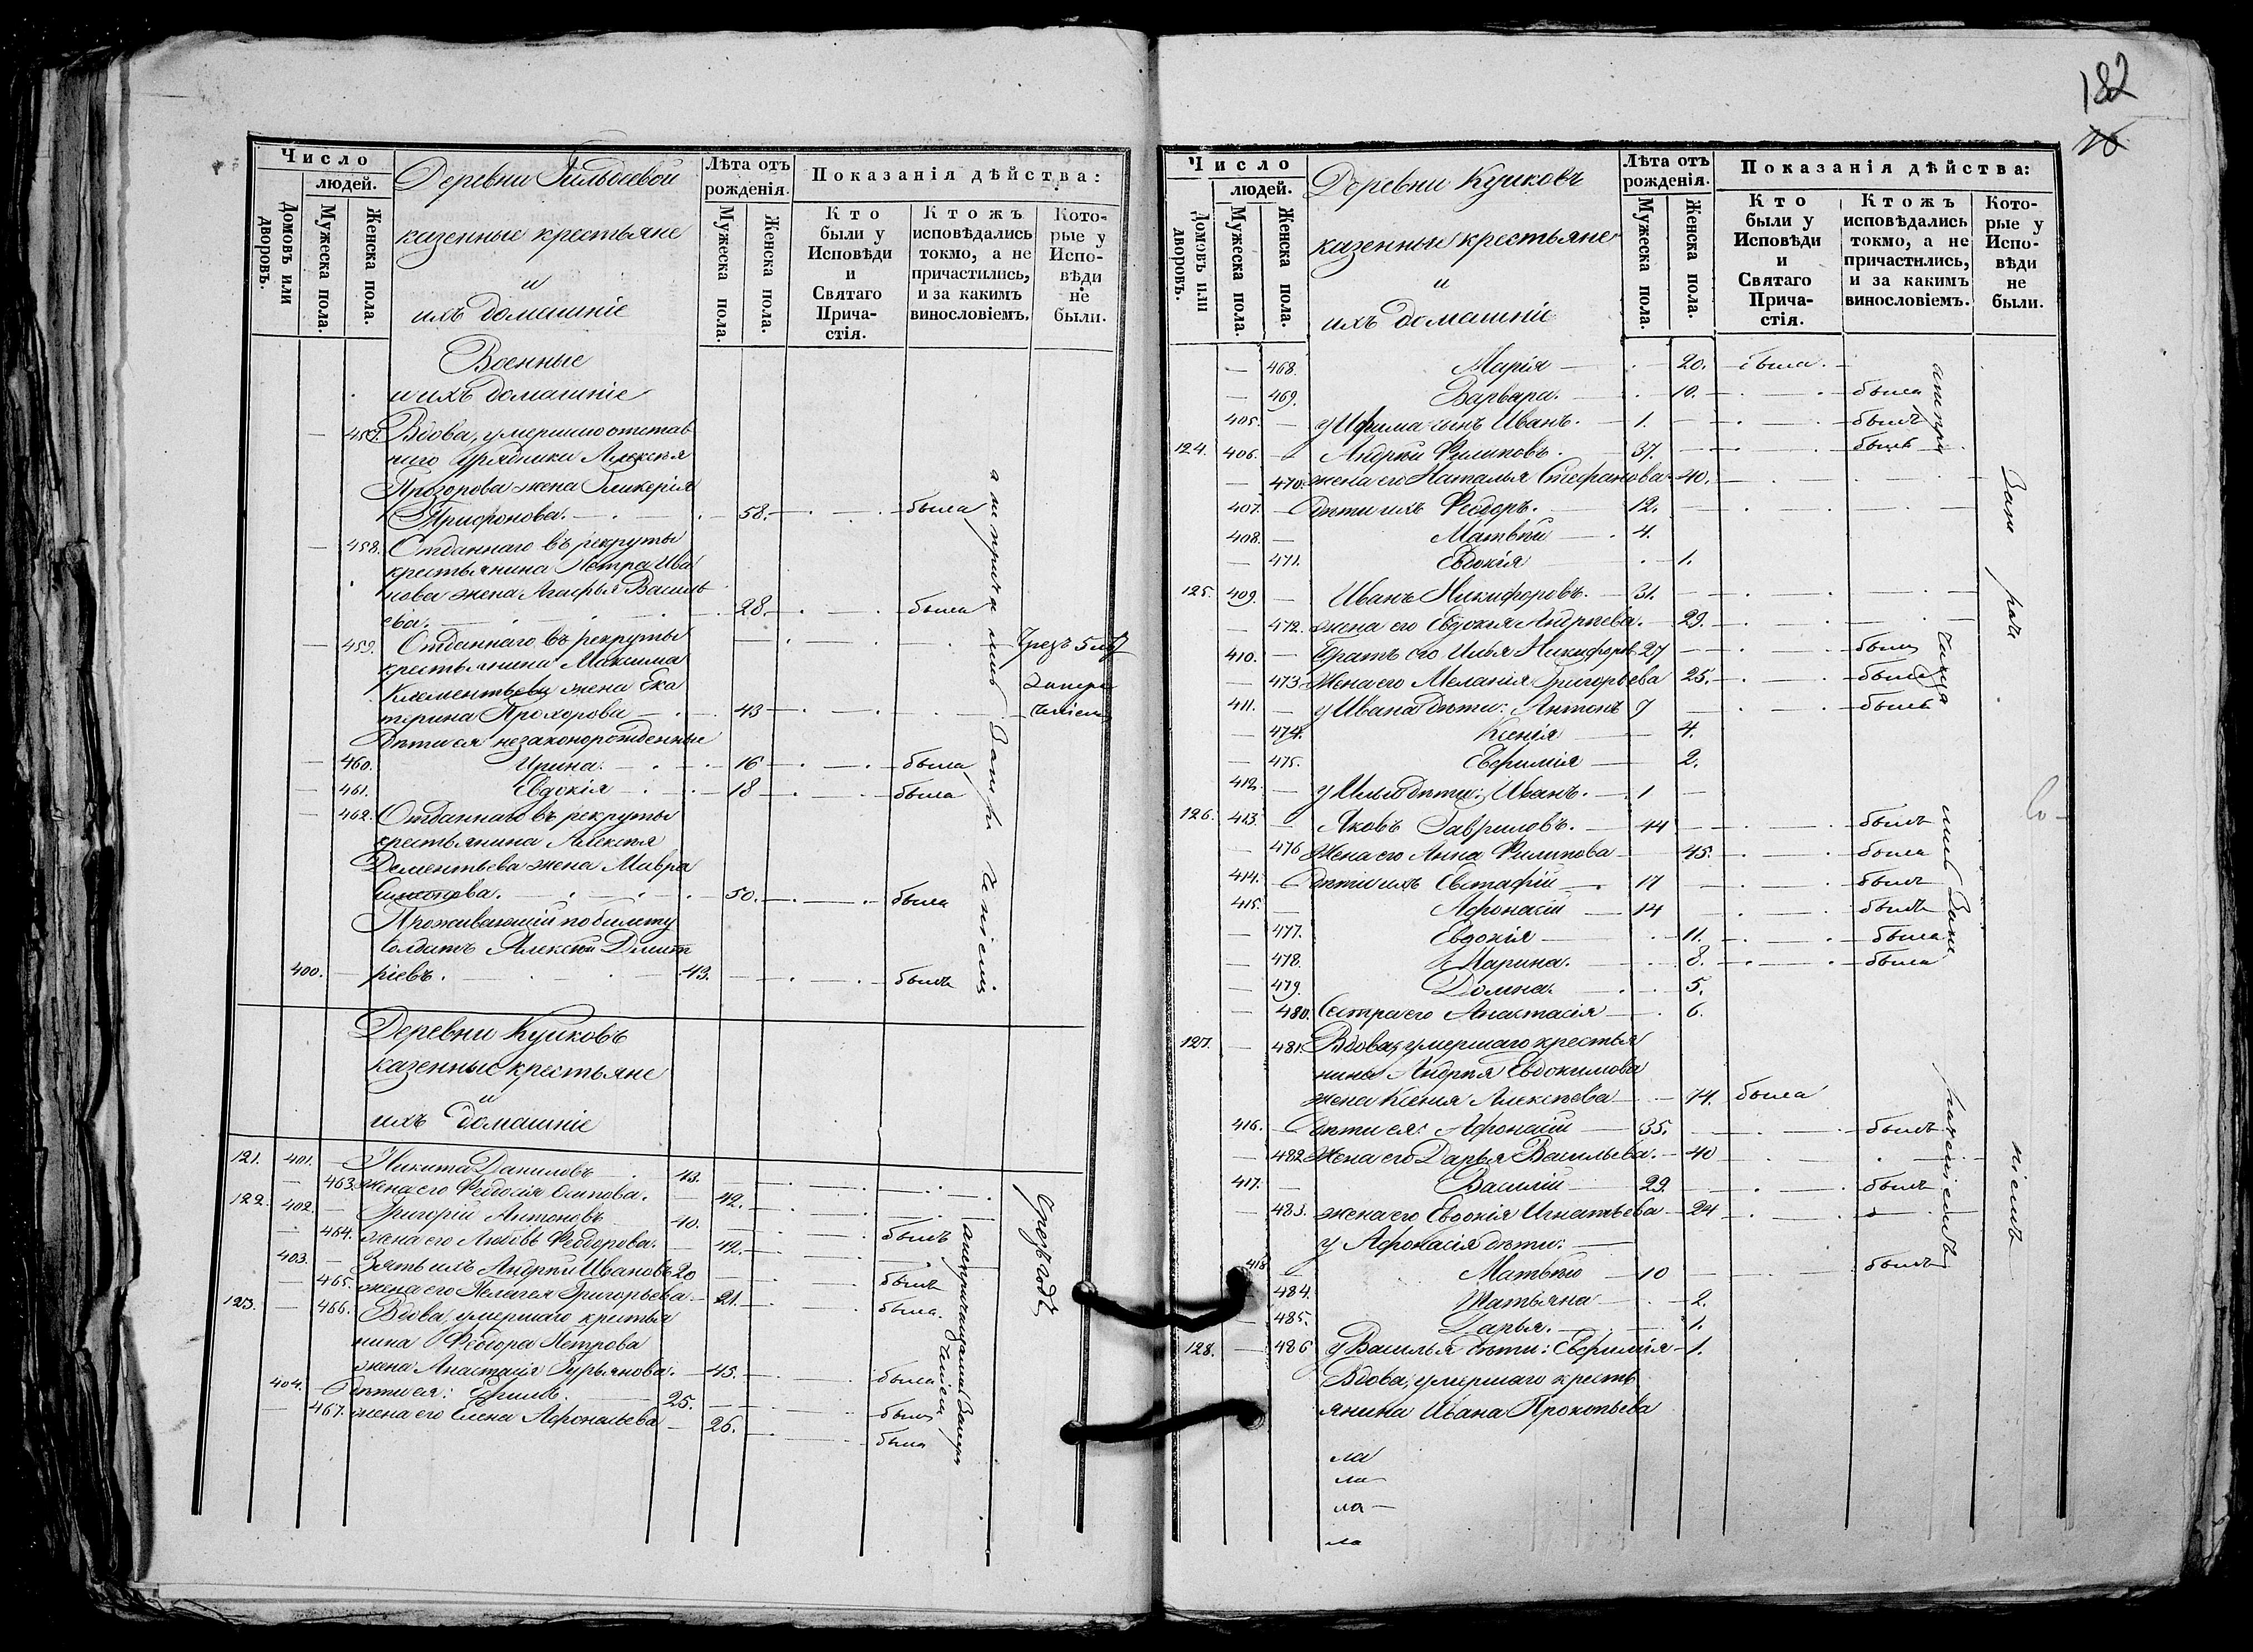 Число
людей.
Домовъ или дворовъ.
Мужеска пола.
Женска пола.
Деревни
казенные крестьяне
и
ихъ домашніе
Лѣта отъ рожденія.
Мужеска пола.
Женска пола.
Показанія дѣйства:
Кто были у Исповѣди и Святаго Прича-стія.
Ктожъ исповѣдались токмо, а не причастились, и за какимъ винословіемъ.
Кото-рые у Испо-вѣди не были.
Военные
и ихъ домашніе
— Вдова, умершаго отстав
ного Урядника Алексѣя
Прозорова жена Гликерія
Трифонова. 58. была
— 458. Отданнаго въ рекруты
крестьянина Петра Ива
нова жена Агафья Василь
ева. 28. была
— 459. Отданнаго въ рекруты
крестьянина Максима
Клементьева жена Ека
терина Прохорова 43
Дѣти ея незаконорожденные
— 460. Ирина. 16 была
— 461. Евдокія 18 была
— 462. Отданнаго въ рекруты
крестьянина Алексѣя
Дементьева жена Мавра
50. была
Проживающій по билету
солдатъ Алексѣй Дмит
400. — ріевъ. 43. былъ
Деревни Куиковъ
казенные крестьяне
и
ихъ домашніе
121. 401. — Никита Даниловъ 43.
— 463. жена его Ѳедосія Осипова. 42.
122. 402. — Григорій Антоновъ 40.
— 464. жена его Любовь Ѳедорова. 42. былъ
403. — Зять ихъ Андрей Ивановъ 20
— 465. жена его Пелагея Григорьева 21. былъ
123. — 466. Вдова, умершаго крестья была.
нина Ѳедора Петрова
жена Анастасія Гурьянова. 45. была
404. — Дѣти ея: 25. былъ
— 467. жена его Елена Афонасьева 26. была
а не причащались за
Чрезъ 5 лѣт
Чрезъ годъ
182
Число
людей.
Домовъ или дворовъ.
Мужеска пола.
Женска пола.
Деревни Куиковъ
казенные крестьяне
и
ихъ домашніе
Лѣта отъ рожденія.
Мужеска пола.
Женска пола.
Показанія дѣйства:
Кто были у Исповѣди и Святаго Прича-стія.
Ктожъ исповѣдались токмо, а не причастились, и за какимъ винословіемъ.
Кото-рые у Испо-вѣди не были.
— 468. Марія 20. была.
— 469. Варвара. 10. была
405. — у сынъ Иванъ. 1. былъ
124. 406. — Андрей Филиповъ. 37. былъ
— 470. жена его Наталья Стефанова 40.
407. — Дѣти ихъ Ѳедоръ. 12.
408. — Матвѣй 4.
— 471. Евдокія 1.
125. 409. — Иванъ Никифоровъ. 31.
— 472. жена его Евдокія Андреева. 29.
410. — Братъ его Илья Никифоровъ 27 былъ
— 473. Жена его Меланія Григорьева 25. была
411. — у Ивана дѣти: Антонъ 7 былъ
— 474. Ксенія 4.
— 475. Евфимія 2.
412. — у Ильи дѣти: Иванъ. 1
126. 413. — Яковъ Гавриловъ. 44 былъ
— 476 Жена его Анна Филипова 45. была
414. — Дѣти ихъ Евстафій 17 былъ
415. — Афонасій 14 былъ
— 477. Евдокія 11. была
— 478. Марина. 8. была
— 479. Домна. 5.
— 480. Сестра его Анастасія 6.
127. — 481. Вдова, умершаго крестья
нина Андрея Евдокимова
жена Ксенія Алексѣева 74. была
416. — Дѣти ея: Афонасій 35. былъ
— 482. Жена его Дарья Васильева. 40
417. — Василій 29. былъ
— 483. жена его Евдокія Игнатьева 24
у Афонасія дѣти:
418 — Матвѣй 10 былъ
— 484. Татьяна 2.
— 485. Дарья. 1.
128. — 486 у Василья дѣти: Евфимія 1.
Вдова, умершаго кресть
янина Ивана Прокопьева
ла
ла
ла
ла